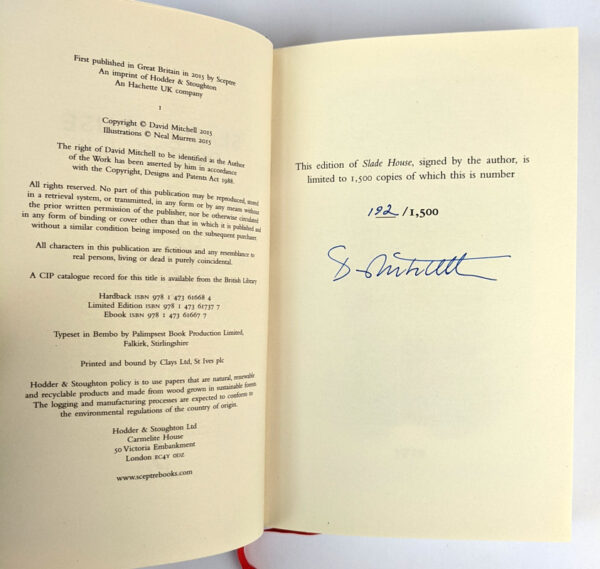 First published in Great Britain in 2015 by Sceptre
An imprint of Hodder & Stoughton
An Hachette UK company
1
Copyright © David Mitchell 2015
Illustrations © Neal Murren 2015
The right of David Mitchell to be identified as the Author
of the Work has been asserted by him in accordance
with the Copyright, Designs and Patents Act 1988.
All rights reserved. No part of this publication may be reproduced, stored
in a retrieval system, or transmitted, in any form or by any means without
the prior written permission of the publisher, nor be otherwise circulated
in any form of binding or cover other than that in which it is published and
without a similar condition being imposed on the subsequent purchaser.
All characters in this publication are fictitious and any resemblance to
real persons, living or dead is purely coincidental.
A CIP catalogue record for this title is available from the British Library
Hardback ISBN 978 1 473 61668 4
Limited Edition ISBN 978 1 473 61737 7
Ebook ISBN 978 1 473 61667 7
Typeset in Bembo by Palimpsest Book Production Limited,
Falkirk, Stirlingshire
Printed and bound by Clays Ltd, St Ives plc
Hodder & Stoughton policy is to use papers that are natural, renewable
and recyclable products and made from wood grown in sustainable forests.
The logging and manufacturing processes are expected to conform to
the environmental regulations of the country of origin.
Hodder & Stoughton Ltd
Carmelite House
50 Victoria Embankment
London EC4Y 0DZ
www.sceptrebooks.com
This edition of Slade House, signed by the author, is
limited to 1,500 copies of which this is number
192 /1,500
D Mitchell